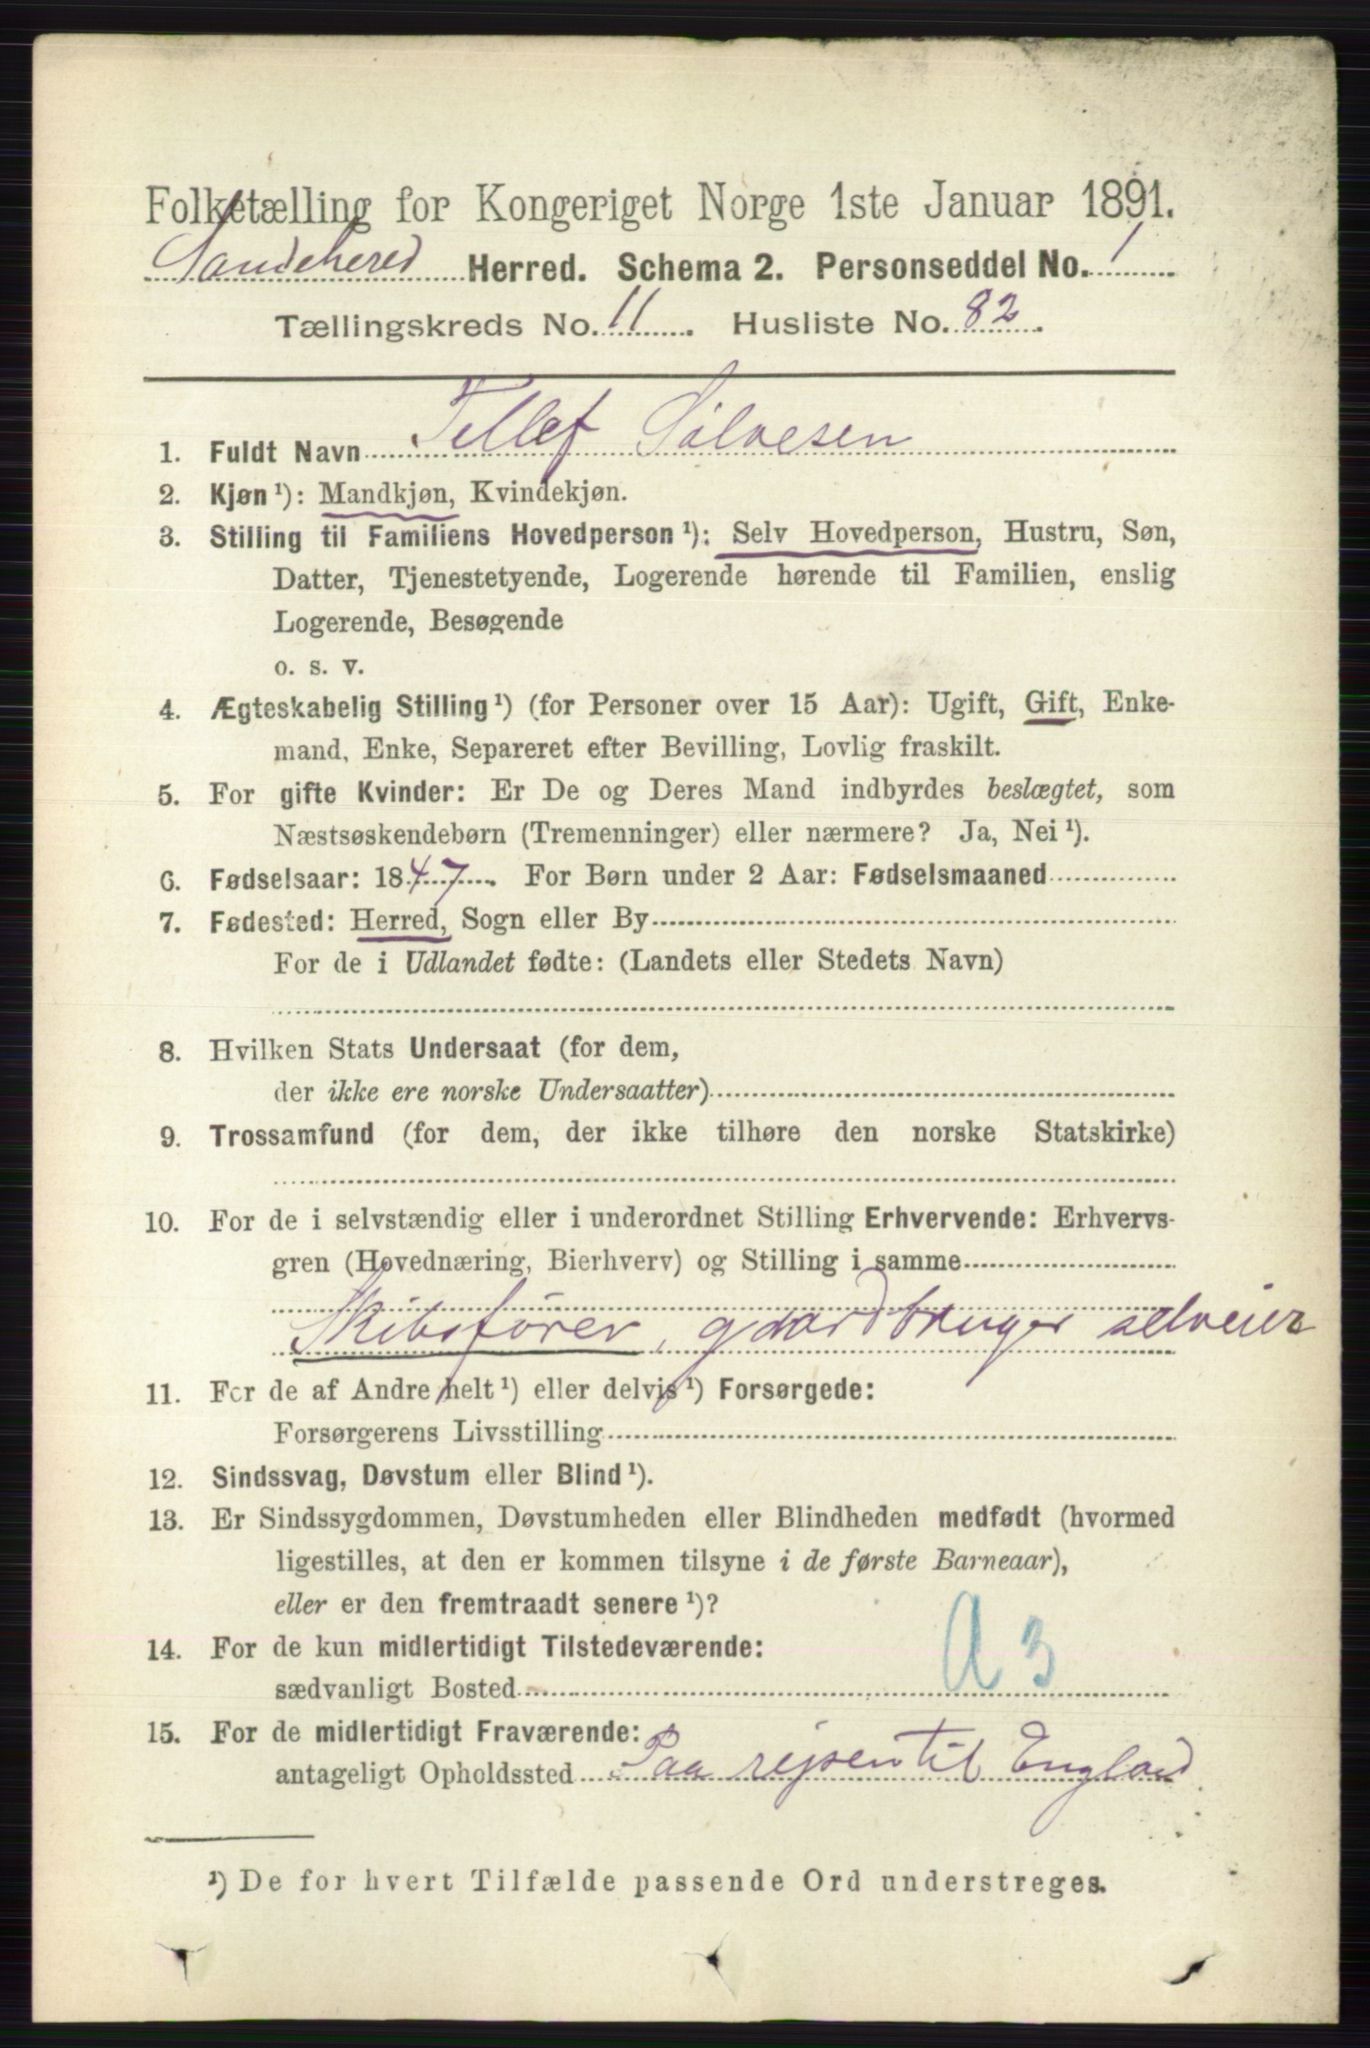 Folketælling for Kongeriget Norge 1ste Januar 1891.
Sandehered Herred. Schema 2. Personseddel No. 1
Tællingskreds No. 11. Husliste No. 82.
1. Fuldt Navn Tellef Sølvesen
2. Kjøn ¹): Mandkjøn, Kvindekjøn.
3. Stilling til Familiens Hovedperson ¹): Selv Hovedperson, Hustru, Søn,
Datter, Tjenestetyende, Logerende hørende til Familien, enslig
Logerende, Besøgende
o. s. v.
4. Ægteskabelig Stilling ¹) (for Personer over 15 Aar): Ugift, Gift, Enke-
mand, Enke, Separeret efter Bevilling, Lovlig fraskilt.
5. For gifte Kvinder: Er De og Deres Mand indbyrdes beslægtet, som
Næstsøskendebørn (Tremenninger) eller nærmere? Ja, Nei ¹).
6. Fødselsaar: 1847. For Børn under 2 Aar: Fødselsmaaned
7. Fødested: Herred, Sogn eller By
For de i Udlandet fødte: (Landets eller Stedets Navn)
8. Hvilken Stats Undersaat (for dem,
der ikke ere norske Undersaatter)
9. Trossamfund (for dem, der ikke tilhøre den norske Statskirke)
10. For de i selvstændig eller i underordnet Stilling Erhvervende: Erhvervs-
gren (Hovednæring, Bierhverv) og Stilling i samme
Skibsfører, gaardbruger selveier
11. For de af Andre helt ¹) eller delvis ¹) Forsørgede:
Forsørgerens Livsstilling
12. Sindssvag, Døvstum eller Blind ¹).
13. Er Sindssygdommen, Døvstumheden eller Blindheden medfødt (hvormed
ligestilles, at den er kommen tilsyne i de første Barneaar),
eller er den fremtraadt senere ¹)?
14. For de kun midlertidigt Tilstedeværende:
sædvanligt Bosted
A 3
15. For de midlertidigt Fraværende:
antageligt Opholdssted Paa rejsen til England
¹) De for hvert Tilfælde passende Ord understreges.